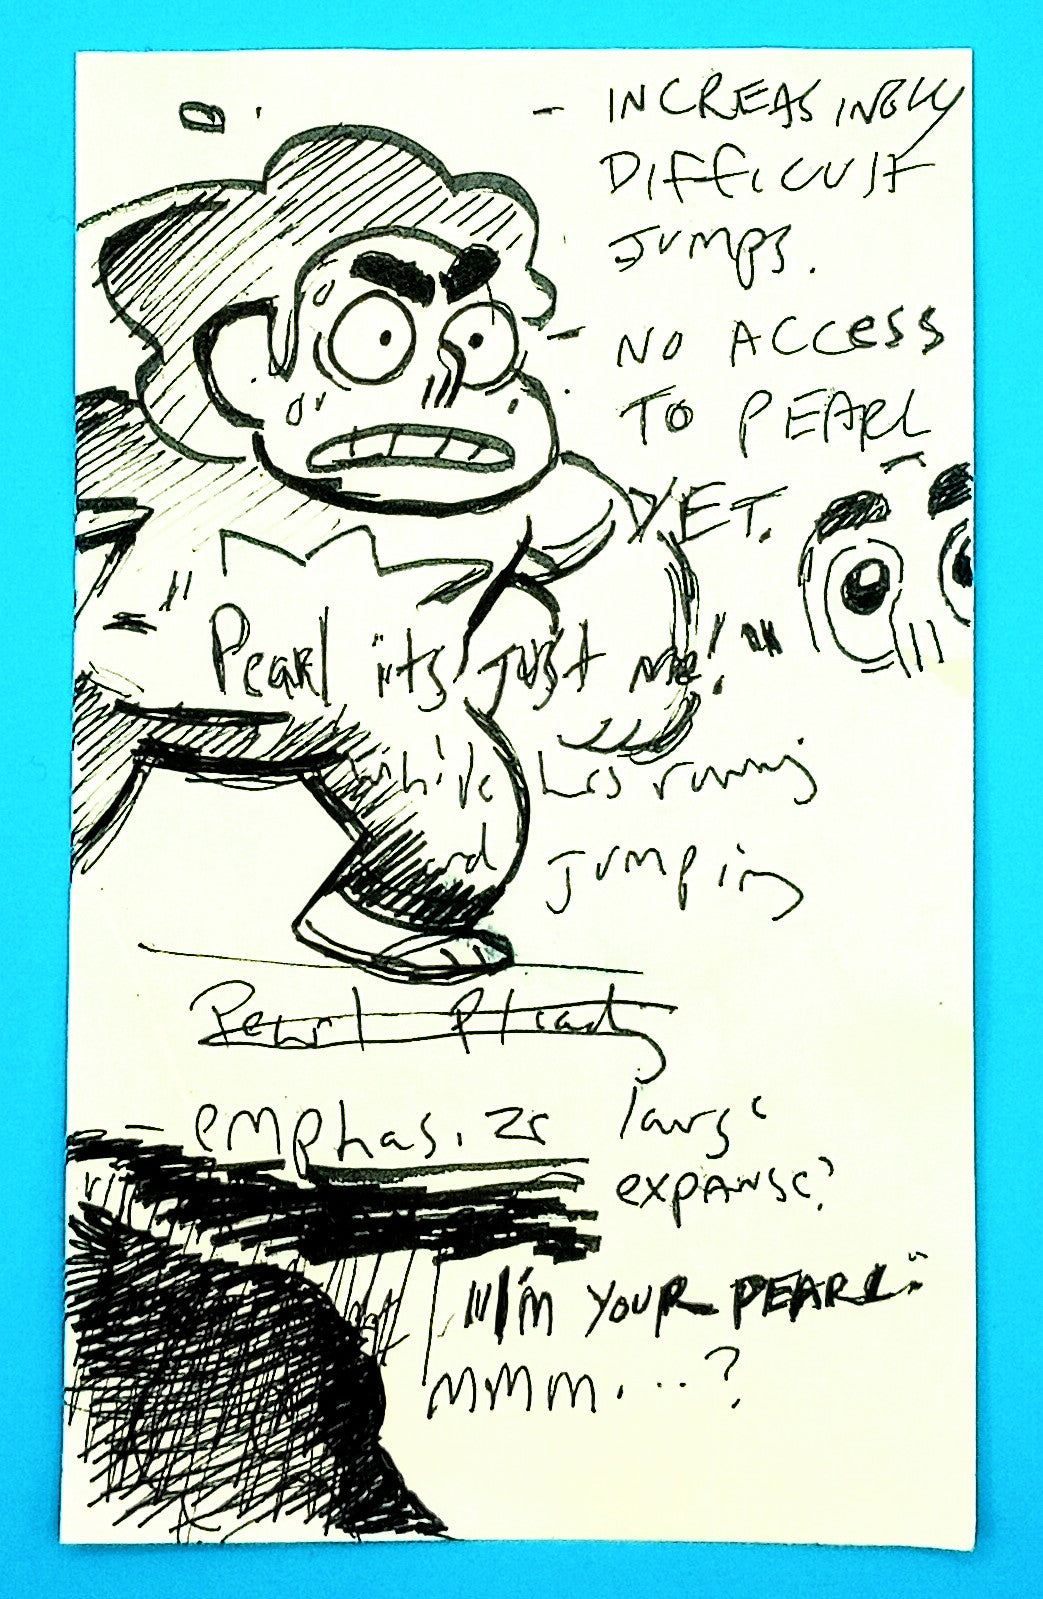 - INCREASINGLY
DIFFICULT
JUMPS.
- NO ACCESS
TO PEARL
YET.
"Pearl its just me!"
while hes running
and jumping
Pearl
- emphasize large
expanse?
"I'M YOUR PEARL."
MMM...?